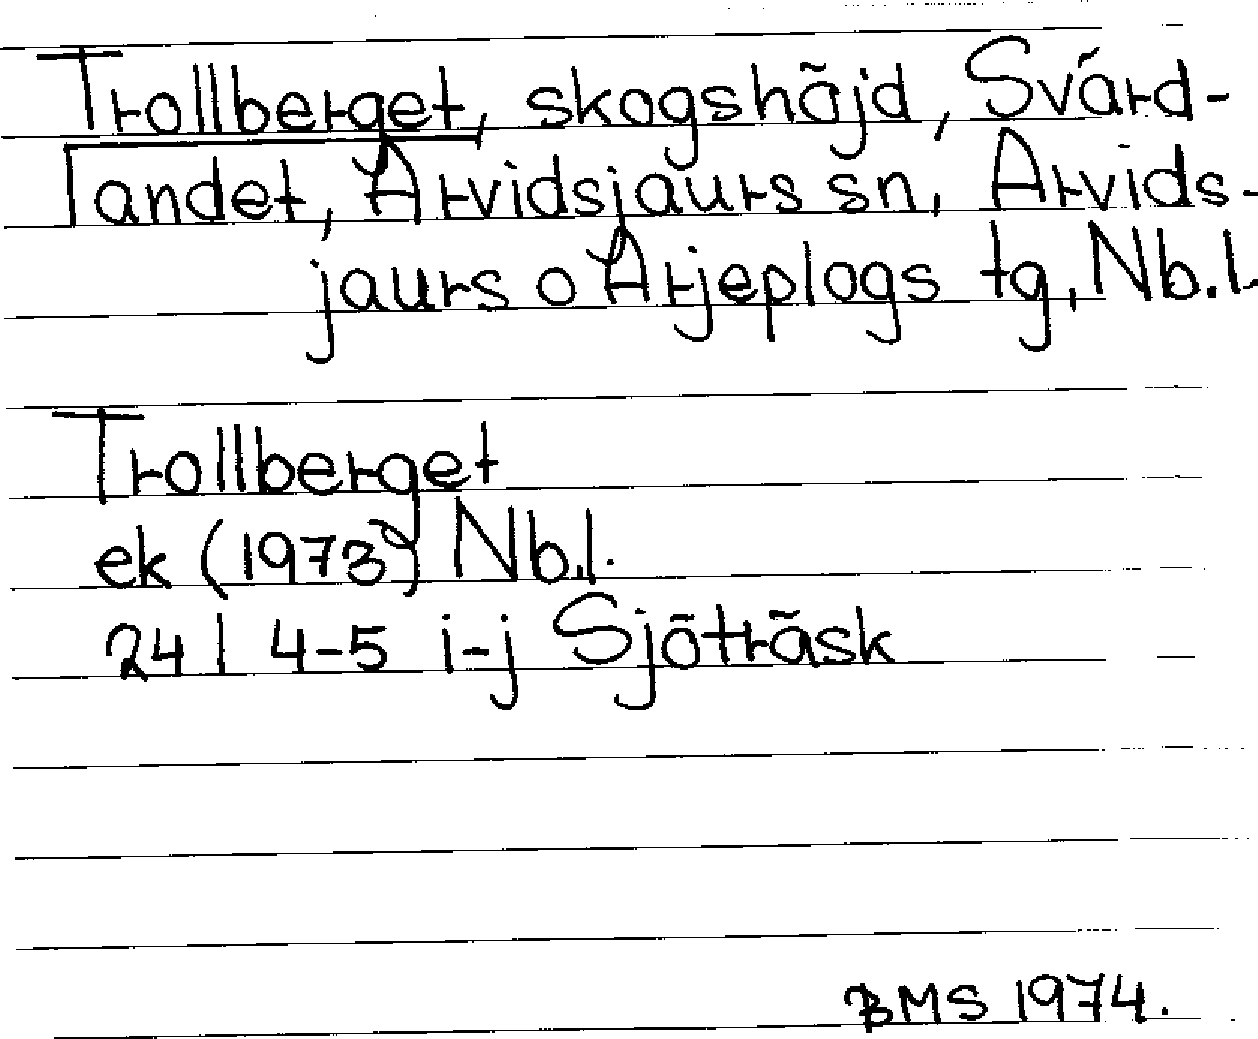 Trollberget, skogshöjd, Svärd-
landet, Arvidsjaurs sn, Arvids-
jaurs o Arjeplogs tg, Nb.l.
Trollberget
ek (1973) Nb.l.
24 I 4-5 i-j Sjöträsk
BMS 1974.